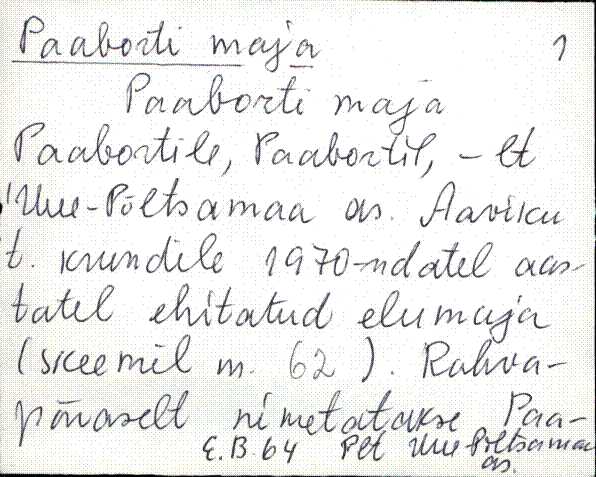 Paaborti maja 1
Paaborti maja
Paabortile, Paabortil, -lt
Uue-Põltsamaa as. Aaviku
t. krundile 1970-ndatel aas-
tatel ehitatud elumaja
(skeemil m. 62). Rahva-
päraselt nimetatakse Paa-
E.B.64 Plt Uue-Põltsamaa
as.